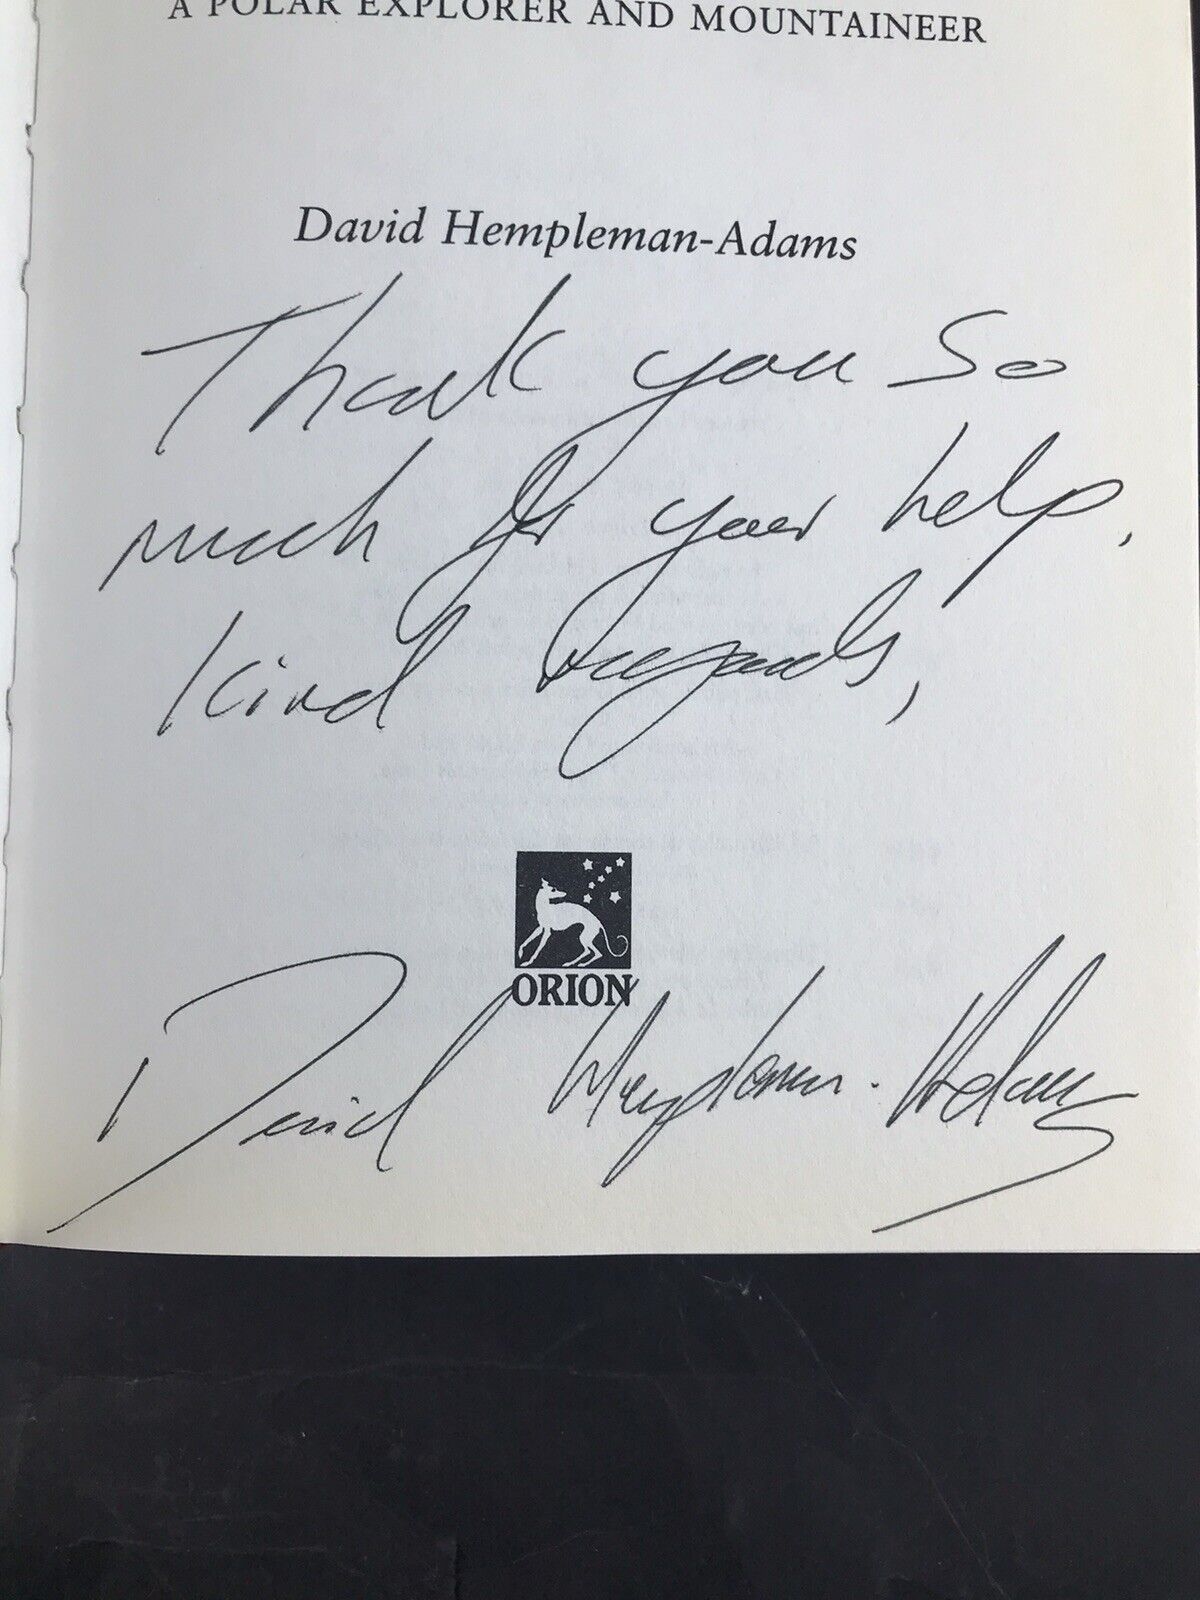 A POLAR EXPLORER AND MOUNTAINEER
David Hempleman-Adams
Thank you so
much for your help,
Kind Regards,
ORION
David Hempleman-Adams